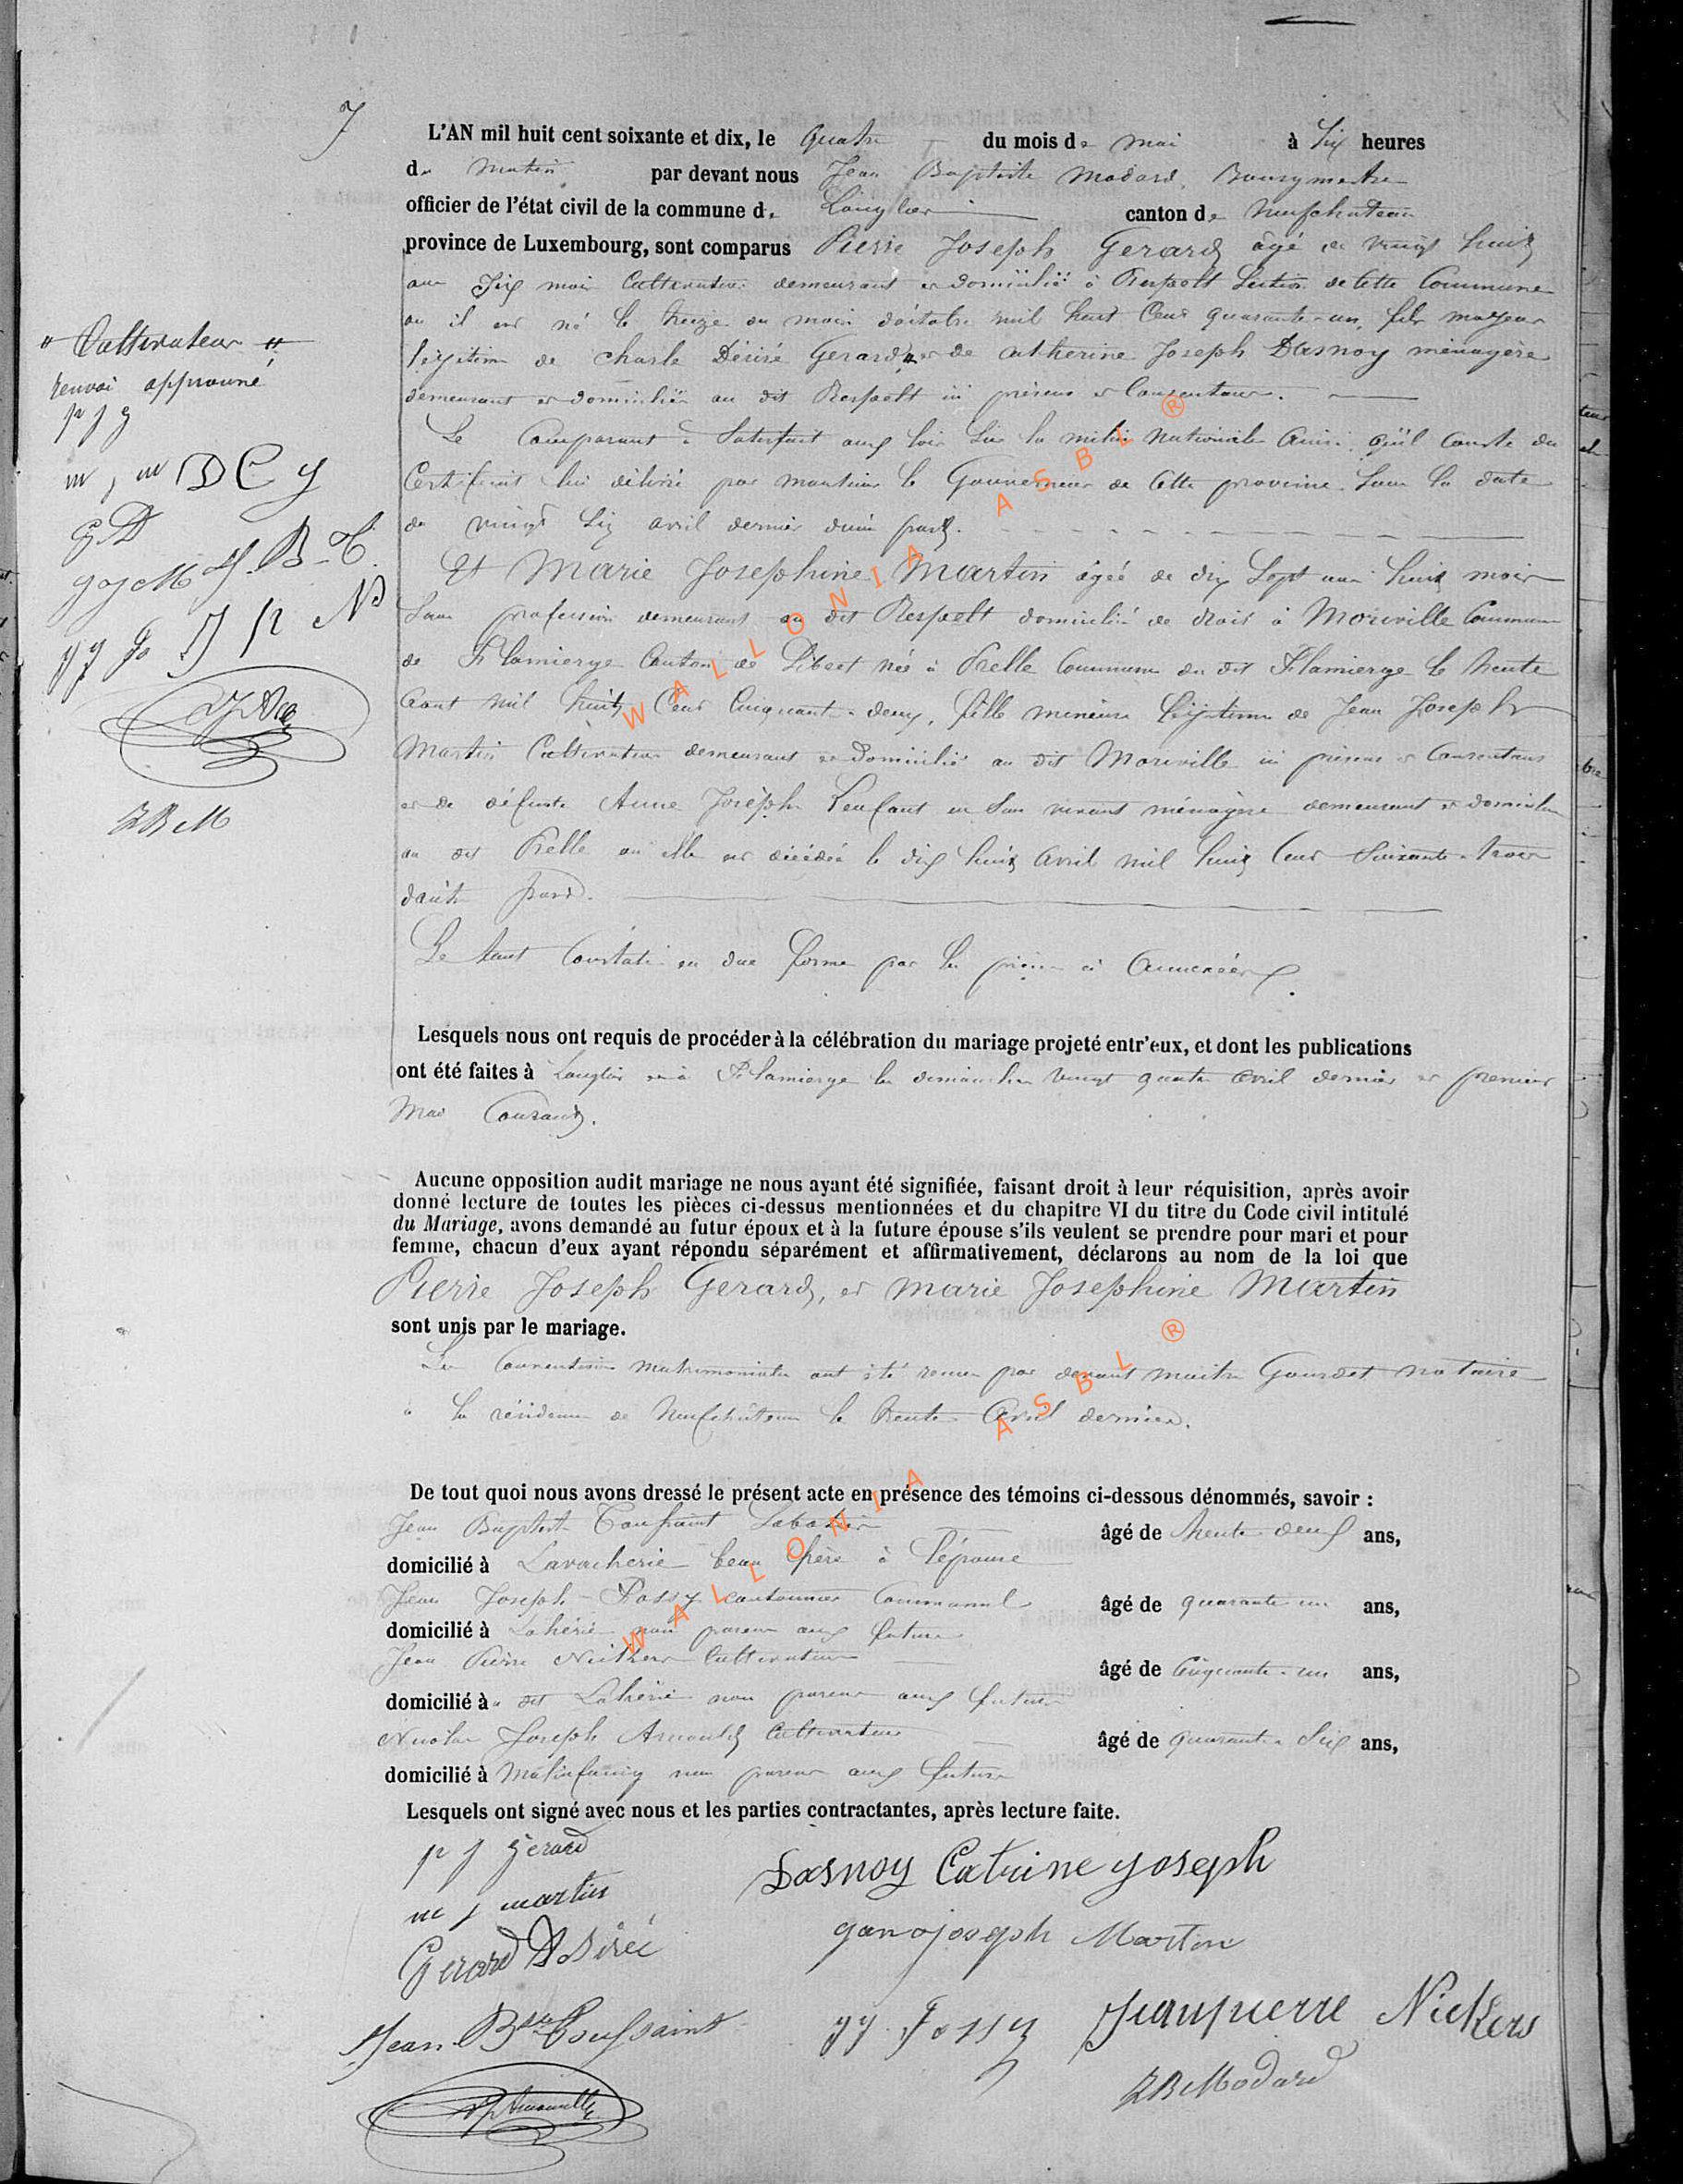 7
L'AN mil huit cent soixante et dix, le quatre du mois de mai à six heures
du matin par devant nous Jean Baptiste Modard, Bourgmestre
officier de l'état civil de la commune de Longlier canton de Neufchateau
province de Luxembourg, sont comparus Pierre Joseph Gerard, âgé de vingt huit
ans six mois Cultivateur demeurant et domicilié à Respelt Section de cette Commune
ou il est né le treize du mois d'octobre mil huit Cent quarante-un, fils majeur
légitime de Charle Désiré Gerard " et de Catherine Joseph Dasnoy ménagère
demeurant et domiciliés au dit Respelt ici présens et Consentans.
Le Comparant a Satisfait aux lois Sur la milice Nationale Ainsi qu'il Conste du
Certificat lui délivré par monsieur le Gouverneur de Cette province Sous la date
du vingt Six avril dernier d'une part.
Et Marie Josephine Martin âgée de dix Sept ans huit mois
Sans profession demeurant au dit Respelt domicilié de droit à Moriville Commune
de Flamierge Canton de Sibret née à Frelle Commune du dit Flamierge le trente
aout mil huit Cent Cinquante-deux, fille mineure légitime de Jean Joseph
Martin Cultivateur demeurant et Domicilié au dit Moriville ici présent et Consentant
et de défunte Anne Joseph Lenfant en Son vivant ménagère demeurant et domiciliée
au dit Frelle ou elle est décédée le dix huit Avril mil huit Cent Soixante-trois
d'autre part.
Le tout Constaté en due forme par les pièces ci Annexées.
" Cultivateur "
renvoi approuvé
p j g
m j m D C y
g D
g y M J. B. T.
g y fo J p N
J B M
Lesquels nous ont requis de procéder à la célébration du mariage projeté entr'eux, et dont les publications
ont été faites à Longlier et à Flamierge les dimanches vingt quatre avril dernier et premier
Mai Courant.
Aucune opposition audit mariage ne nous ayant été signifiée, faisant droit à leur réquisition, après avoir
donné lecture de toutes les pièces ci-dessus mentionnées et du chapitre VI du titre du Code civil intitulé
du Mariage, avons demandé au futur époux et à la future épouse s'ils veulent se prendre pour mari et pour
femme, chacun d'eux ayant répondu séparément et affirmativement, déclarons au nom de la loi que
Pierre Joseph Gerard, et Marie Josephine Martin
sont unis par le mariage.
Les Conventions matrimoniales ont été recues par devant maitre Gourdet notaire
à la résidence de Neufchâteau le trente Avril dernier.
De tout quoi nous avons dressé le présent acte en présence des témoins ci-dessous dénommés, savoir :
Jean Baptiste Toussaint âgé de trente deux ans,
domicilié à Lavacherie beau frère à l'épouse
Jean Joseph Fossy cantonnier Communal âgé de quarante un ans,
domicilié à Lahérie non parent aux futurs
Jean Pierre Nickers Cultivateur âgé de Cinquante-un ans,
domicilié à dit Lahérie non parent aux futurs
Nicolas Joseph Arnould Cultivateur âgé de quarante Six ans,
domicilié à Molinfaing non parent aux futurs
Lesquels ont signé avec nous et les parties contractantes, après lecture faite.
p j Gerard
Dasnoy Catrine yoseph
m j martin
ganojoseph Martin
Gerard Désiré
Jean Bte Toussaint
gy. fossy
Jeanpierre Nickers
J B Modard
WALLONIA ASBL ®
WALLONIA ASBL ®